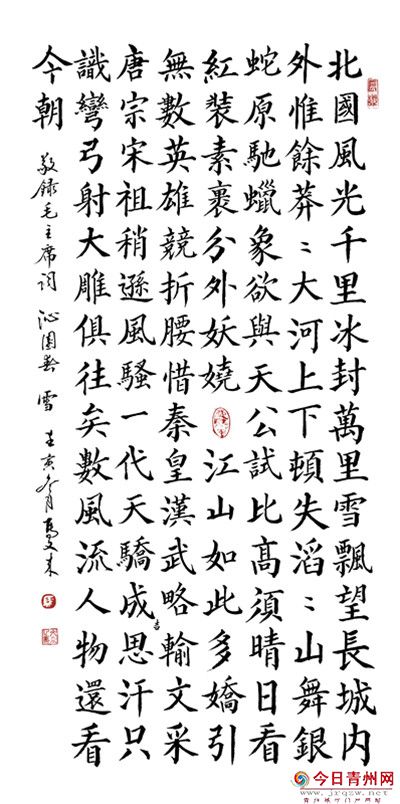 北國風光千里冰封萬里雪飄望長城内
外惟餘莽〻大河上下頓失滔〻山舞銀
蛇原馳蠟象欲與天公試比高須晴日看
紅裝素裹分外妖嬈 江山如此多嬌引
無數英雄競折腰惜秦皇漢武略輸文采
唐宗宋祖稍遜風騷一代天驕成吉思汗只
識彎弓射大雕俱往矣數風流人物還看
今朝
敬錄毛主席詞 沁園春 雪 壬寅冬月
今日青州网
www.jrqzw.net